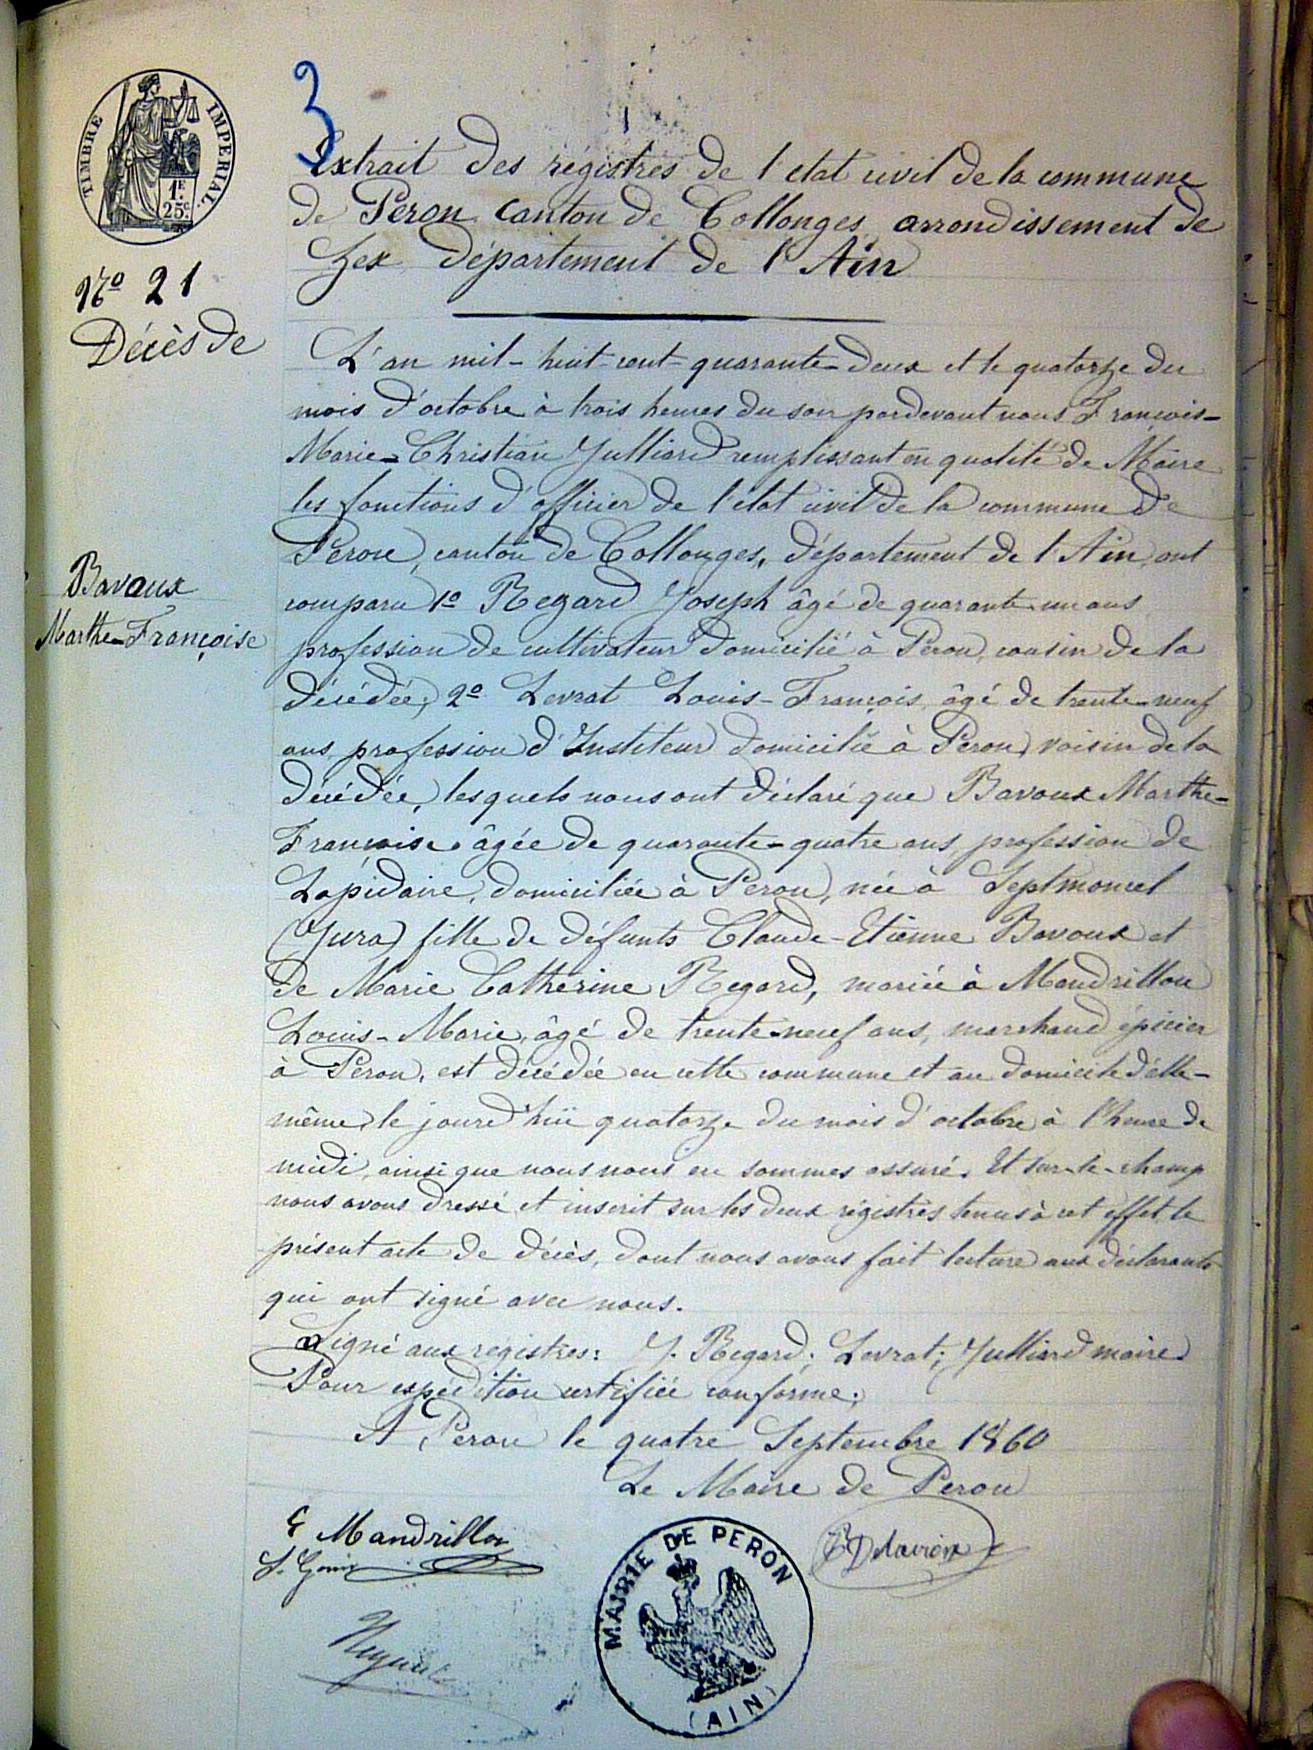 3
TIMBRE IMPERIAL.
1F.
25c.
Extrait des régistres de l'etat civil de la commune
de Peron canton de Collonges arrondissement de
Gex département de l'Ain
No 21
Décès de
Bavoux
Marthe-Françoise
L'an mil-huit-cent-quarante-deux et le quatorze du
mois d'octobre à trois heures du soir pardevant nous François-
Marie-Christian Julliard remplissant en qualité de Maire
les fonctions d'officier de l'état civil de la commune de
Peron, canton de Collonges, département de l'Ain, ont
comparu 1o Regard Joseph âgé de quarante-un ans
profession de cultivateur domicilié à Peron, cousin de la
décédée; 2o Levrat Louis-François, âgé de trente-neuf
ans, profession d'Institeur domicilié à Peron, voisin de la
décédée, lesquels nous ont déclaré que Bavoux Marthe-
Françoise, âgée de quarante-quatre ans, profession de
Lapidaire, domiciliée à Peron, née à Septmoncel
(Jura) fille de défunts Claude-Etienne Bavoux et
de Marie Catherine Regard, mariée à Mandrillon
Louis-Marie, âgé de trente-neuf ans, marchand épicier
à Peron, est décédée en cette commune et au domicile d'elle-
même, le jourd'hui quatorze du mois d'octobre à l'heure de
midi, ainsi que nous nous en sommes assuré. Et sur-le-champ
nous avons dressé et inscrit sur les deux régistres tenus à cet effet le
présent acte de décès, dont nous avons fait lecture aux déclarants
qui ont signé avec nous.
Signé aux registres: J. Regard; Levrat; Julliard maire.
Pour expédition certifiée conforme;
A Peron le quatre Septembre 1860
Le Maire de Peron
Mandrillon
MAIRIE DE PERON
(AIN)